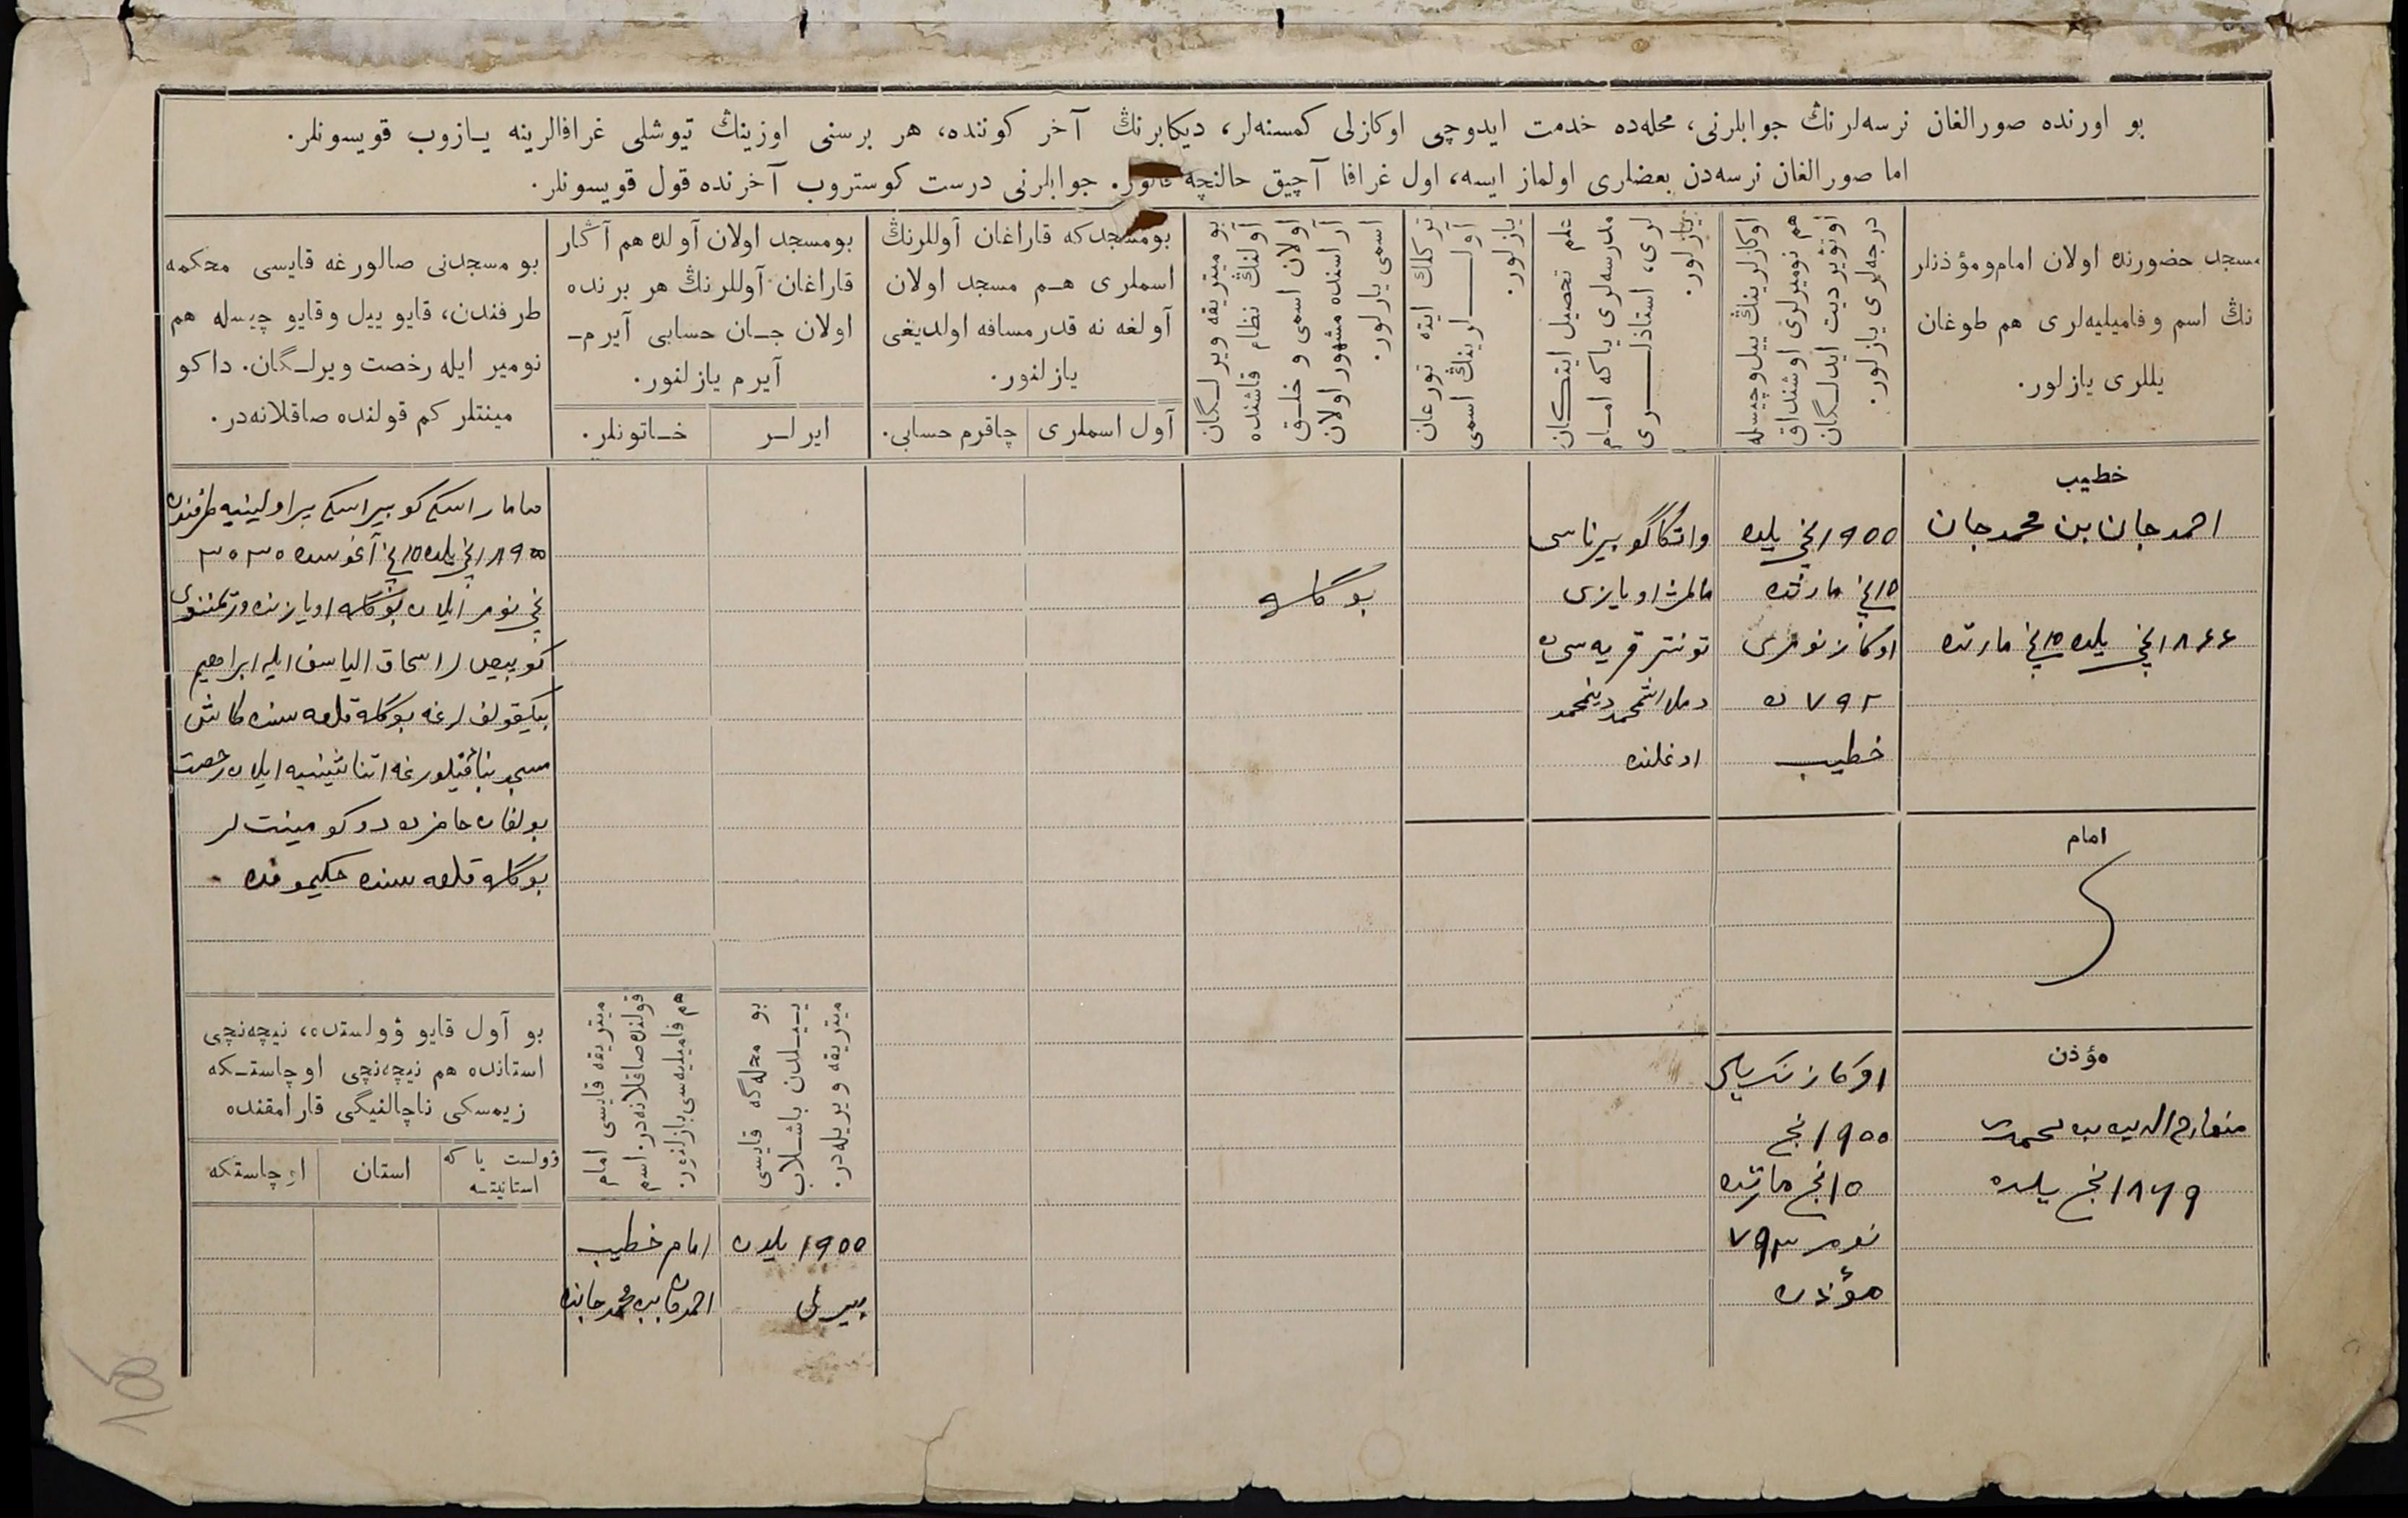 بو اورنده صورالغان نرسه‌لرنڭ جوابلرنی، محله‌ده خدمت ایدوچی اوکازلی کمسنه‌لر، دیکابرنڭ آخر کوننده، هر برسنی اوزینڭ تیوشلی غرافالرینه یازوب قویسونلر.
اما صورالغان نرسه‌دن بعضلری اولماز ایسه، اول غرافا آچیق حالنچه قالور. جوابلرنی درست کوستروب آخرنده قول قویسونلر.
مسجد حضورنده اولان امام‌ومؤذنلر
نڭ اسم وفامیلیه‌لری هم طوغان
یللری یازلور.
اوکازلرینڭ ییل‌وچیسله
هم نومیرلری اوشنداق
اوتویردیت ایدلگان
درجه‌لری یازلور.
علم تحصیل ایتکان
مدرسه‌لری یاکه امام
لری، استاذلری
یازلور.
ترکلک ایته تورغان
آوللرینڭ اسمی
یازلور.
بو میتریقه ویرلگان
آولنڭ نظام قاشنده
اولان اسمی و خلق
آراسنده مشهور اولان
اسمی یازلور.
بومسجدکه قاراغان آوللرنڭ
اسملری هم مسجد اولان
آولغه نه قدر مسافه اولدیغی
یازلنور.
آول اسملری
چاقرم حسابی.
بومسجد اولان آولده هم آڭار
قاراغان آوللرنڭ هر برنده
اولان جان حسابی آیرم-
آیرم یازلنور.
ایرلر
خاتونلر.
بو مسجدنی صالورغه قایسی محکمه
طرفندن، قایو ییل وقایو چیسله هم
نومیر ایله رخصت ویرلگان. داکو
مینتلر کم قولنده صاقلانه‌در.
خطیب
احمدجان بن محمدجان
۱۸۶۶نچی یلده ۱۵نچی مارتده
۱۹۰۰نچی یلده
۱۵نچی مارتده
اوکاز نومری
۷۹۲ ده
خطیب
واتکا گوبیرناسی
مالمژ اویازی
تونتر قریه‌سی
اوغلنده
بوگلمه
صامارسکی گوبیرنسکی پراولینیه طرفندن
۱۹۰۰نچی یلده ۱۵نچی آغوستده ۳۰۳۰
نچی نومر ایلان بوگلمه اویازنده
کوپیسلر اسحاق الیاسف ایله ابراهیم
بیکقولف لرغه بوگلمه قلعه‌سنده طاش
مسجد بنا قیلورغه رخصت
بولغان حاضرده دوکومینت لر
بوگلمه قلعه‌سنده حکیموفده
امام
مؤذن
۱۸۷۹نچی یلده
اوکاز
۱۹۰۰نچی
۱۵نچی مارتده
نومر ۷۹۳
مؤذن
بو محله‌گه قایسی
ییلدن باشلاب
میتریقه ویریله‌در.
۱۹۰۰ یلدن
بیرلی
میتریقه قایسی امام
قولنده صاقلانه‌در. اسم
هم فامیلیه‌سی یازلنور.
امام خطیب
احمدجان بن محمدجانده
بو آول قایو ؤولستده، نیچه‌نچی
استانده هم نیچه‌نچی اوچاستکه
زیمسکی ناچالنیگی قارامقنده
ؤولست یا که
استانیتسه
استان
اوچاستکه
108